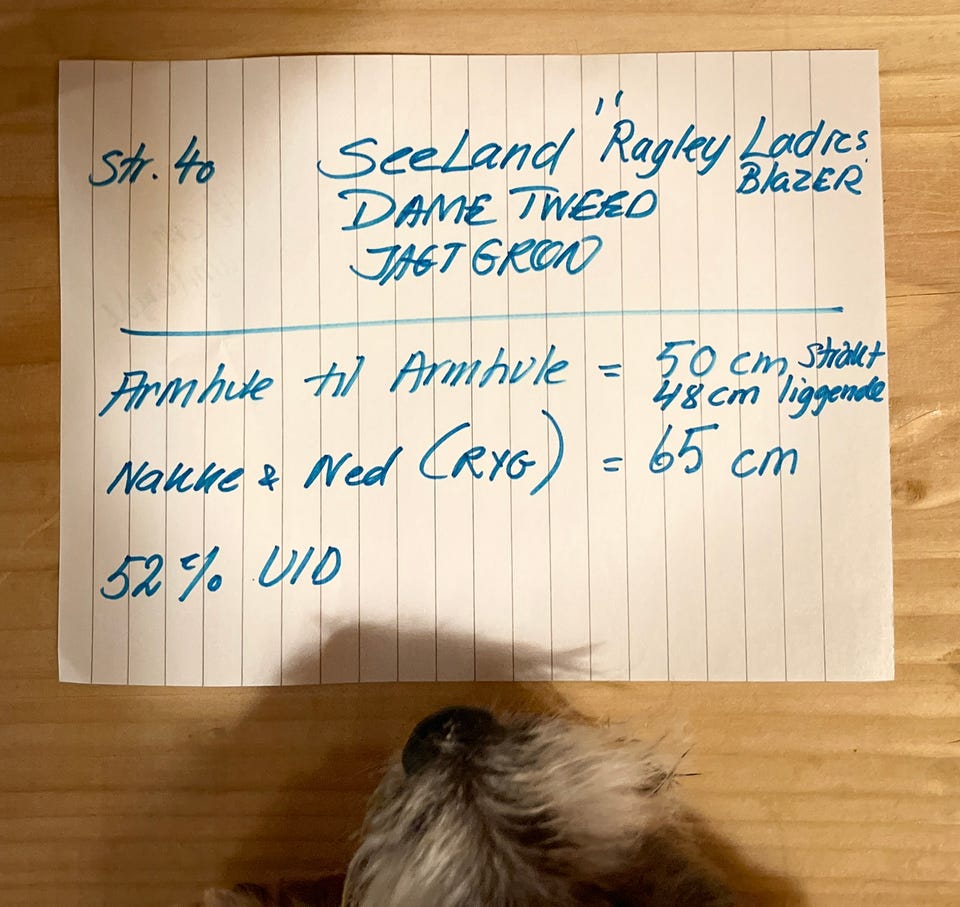 Str. 40 SeeLand "Ragley Ladies
BlazER
DAME TWEED
JAGT GRØN
Armhule til Armhule = 50 cm strakt
48 cm liggende
Nakke & Ned (RYG) = 65 cm
52 % Uld